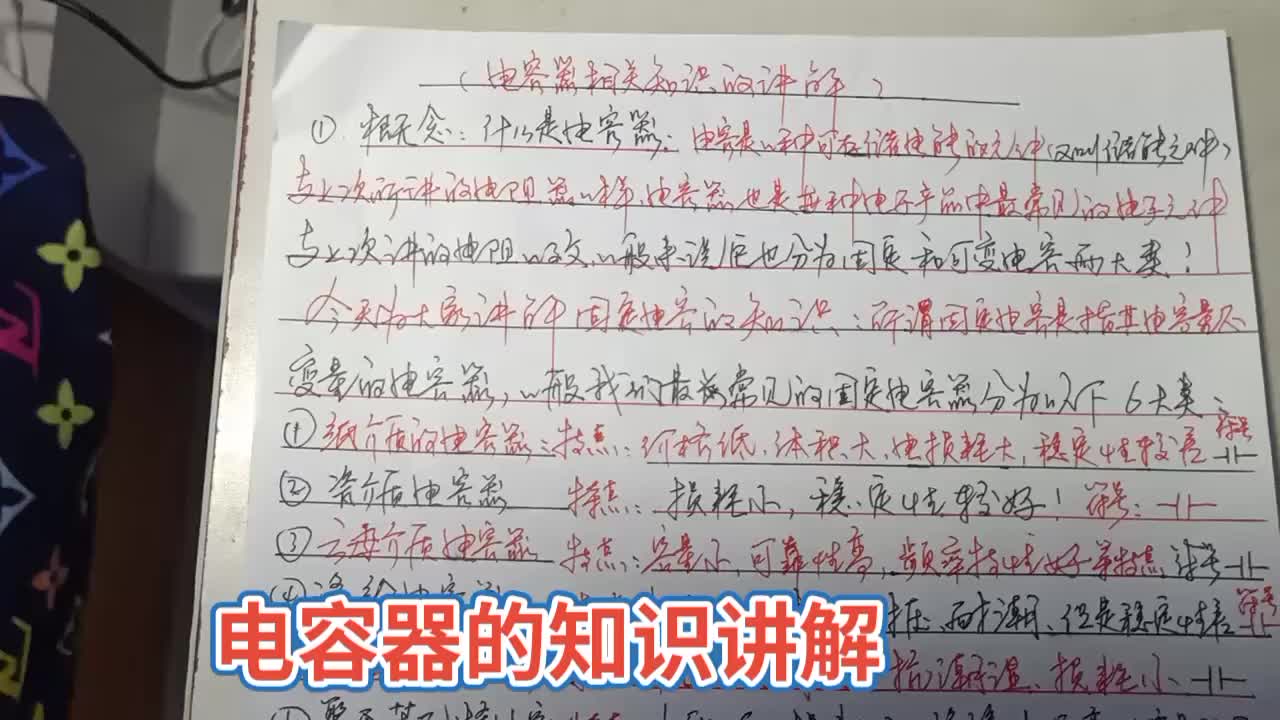 （电容器相关知识的讲解）
①.概念：什么是电容器：电容是一种可存储电能的元件（又叫储能元件）
与上次所讲的电阻器一样，电容器也是各种电子产品中最常见的电子元件
与上次讲的电阻一致，一般来说它也分为固定和可变电容两大类！
今天为大家讲解固定电容的知识：所谓固定电容是指其电容量不
变量的电容器，一般我们最为常见的固定电容器分为以下6大类：
①纸介质的电容器：特点：价格低、体积大，电损耗大，稳定性较差 符号
②瓷介质电容器 特点：损耗小，稳定性较好！符号：
③云母介质电容器 特点：容量小，可靠性高，频率特性好等特点 符号
④ 耐潮、但是稳定性差 符号
电容器的知识讲解
损耗小、